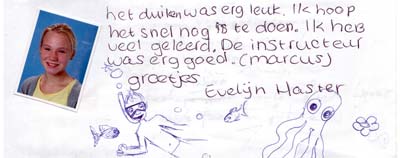 het duiken was erg leuk. Ik hoop
het snel nog is te doen. Ik heb
veel geleerd. De instructeur
was erg goed. (marcus)
groetjes
Evelijn Haster